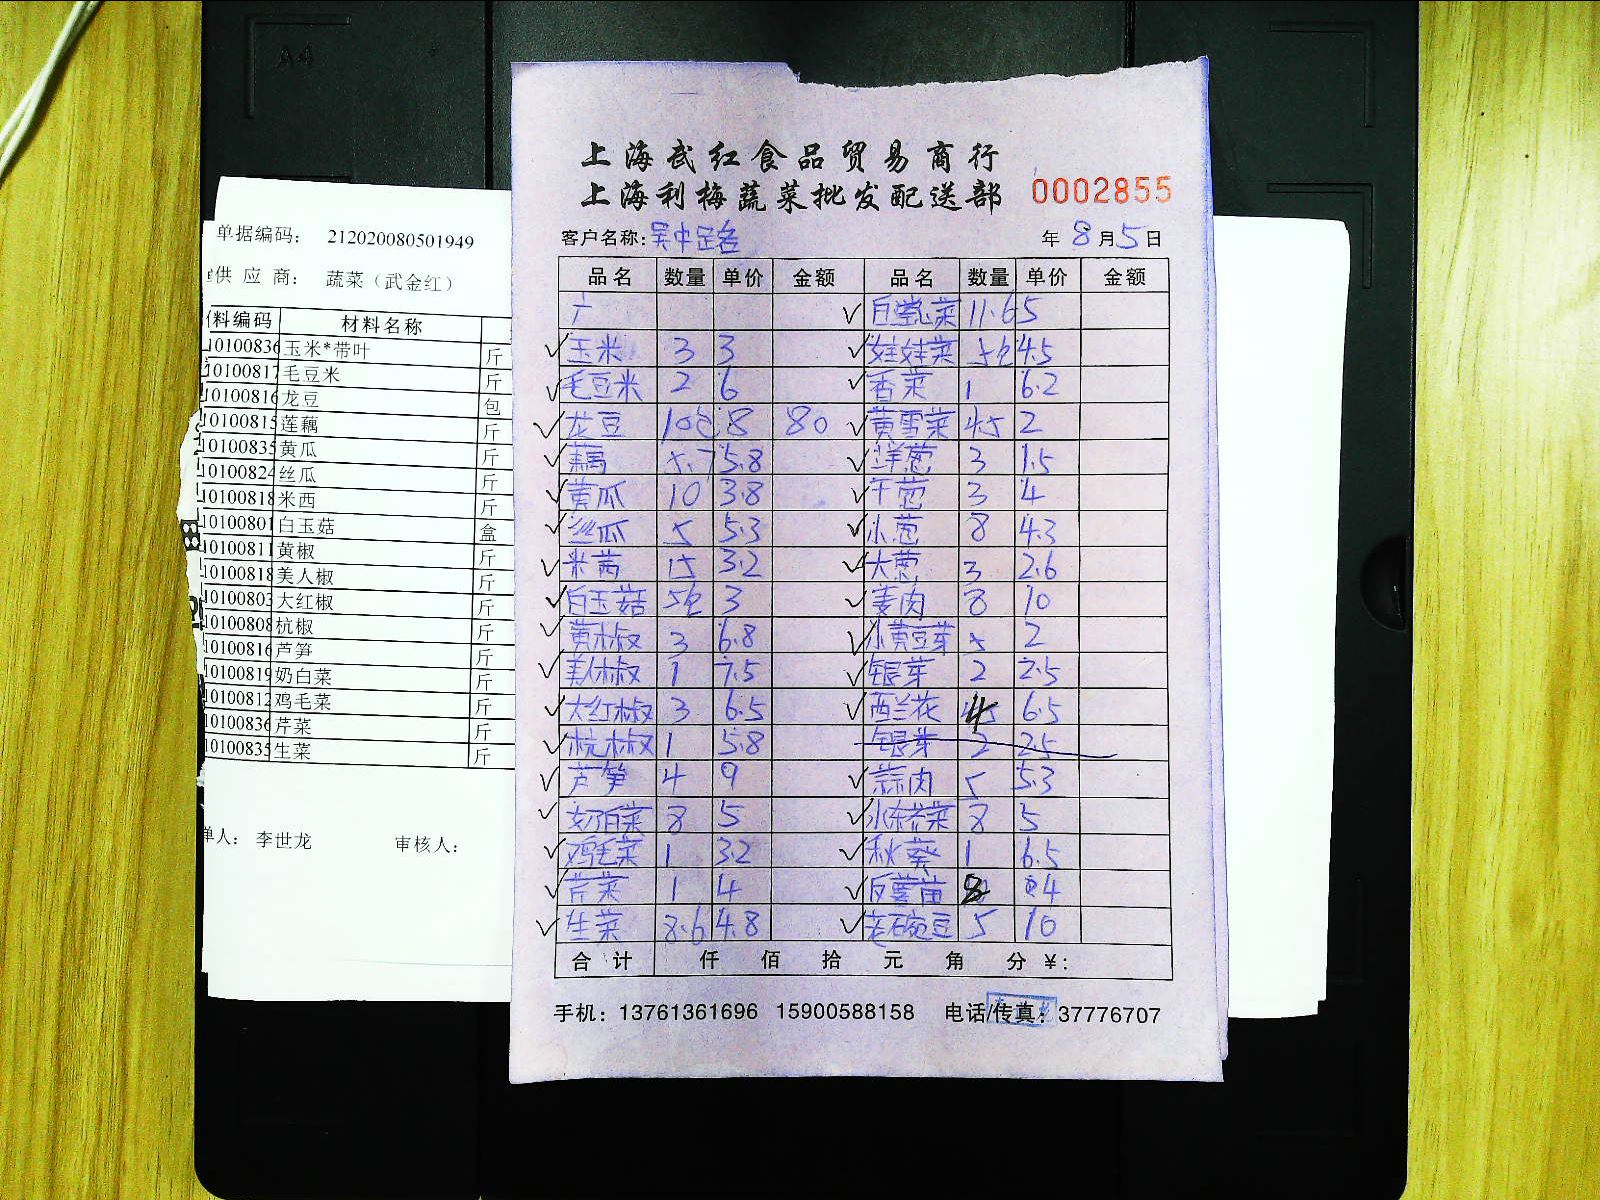 A4
单据编码： 212020080501949
供 应 商： 蔬菜（武金红）
料编码 材料名称
10100836 玉米*带叶 斤
10100817 毛豆米 斤
10100816 龙豆 包
10100815 莲藕 斤
10100835 黄瓜 斤
10100824 丝瓜 斤
10100818 米西 斤
10100801 白玉菇 盒
10100811 黄椒 斤
10100818 美人椒 斤
10100803 大红椒 斤
10100808 杭椒 斤
10100816 芦笋 斤
10100819 奶白菜 斤
10100812 鸡毛菜 斤
10100836 芹菜 斤
10100835 生菜 斤
单人： 李世龙 审核人：
上海武红食品贸易商行
上海利梅蔬菜批发配送部 0002855
客户名称: 吴中 年 8 月 5 日
品名 数量 单价 金额 品名 数量 单价 金额
11.6 5
玉米 3 3 娃娃菜 5包 4.5
毛豆米 2 6 香菜 1 6.2
龙豆 10包 8 80 黄雪菜 45 2
藕 5.7 5.8 洋葱 3 1.5
黄瓜 10 3.8 干葱 3 4
丝瓜 5 5.3 小葱 8 4.3
米茜 15 3.2 大葱 3 2.6
白玉菇 5包 3 姜肉 8 10
黄椒 3 6.8 小黄豆芽 5 2
美人椒 1 7.5 银芽 2 2.5
大红椒 3 6.5 西兰花 4 6.5
杭椒 1 5.8 银芽 2 2.5
芦笋 4 9 蒜肉 5 5.3
奶白菜 8 5 8 5
鸡毛菜 1 3.2 秋葵 1 6.5
芹菜 1 4 8 4
生菜 8.6 4.8 老碗豆 5 10
合 计 仟 佰 拾 元 角 分 ¥:
手机：13761361696 15900588158 电话/传真：37776707